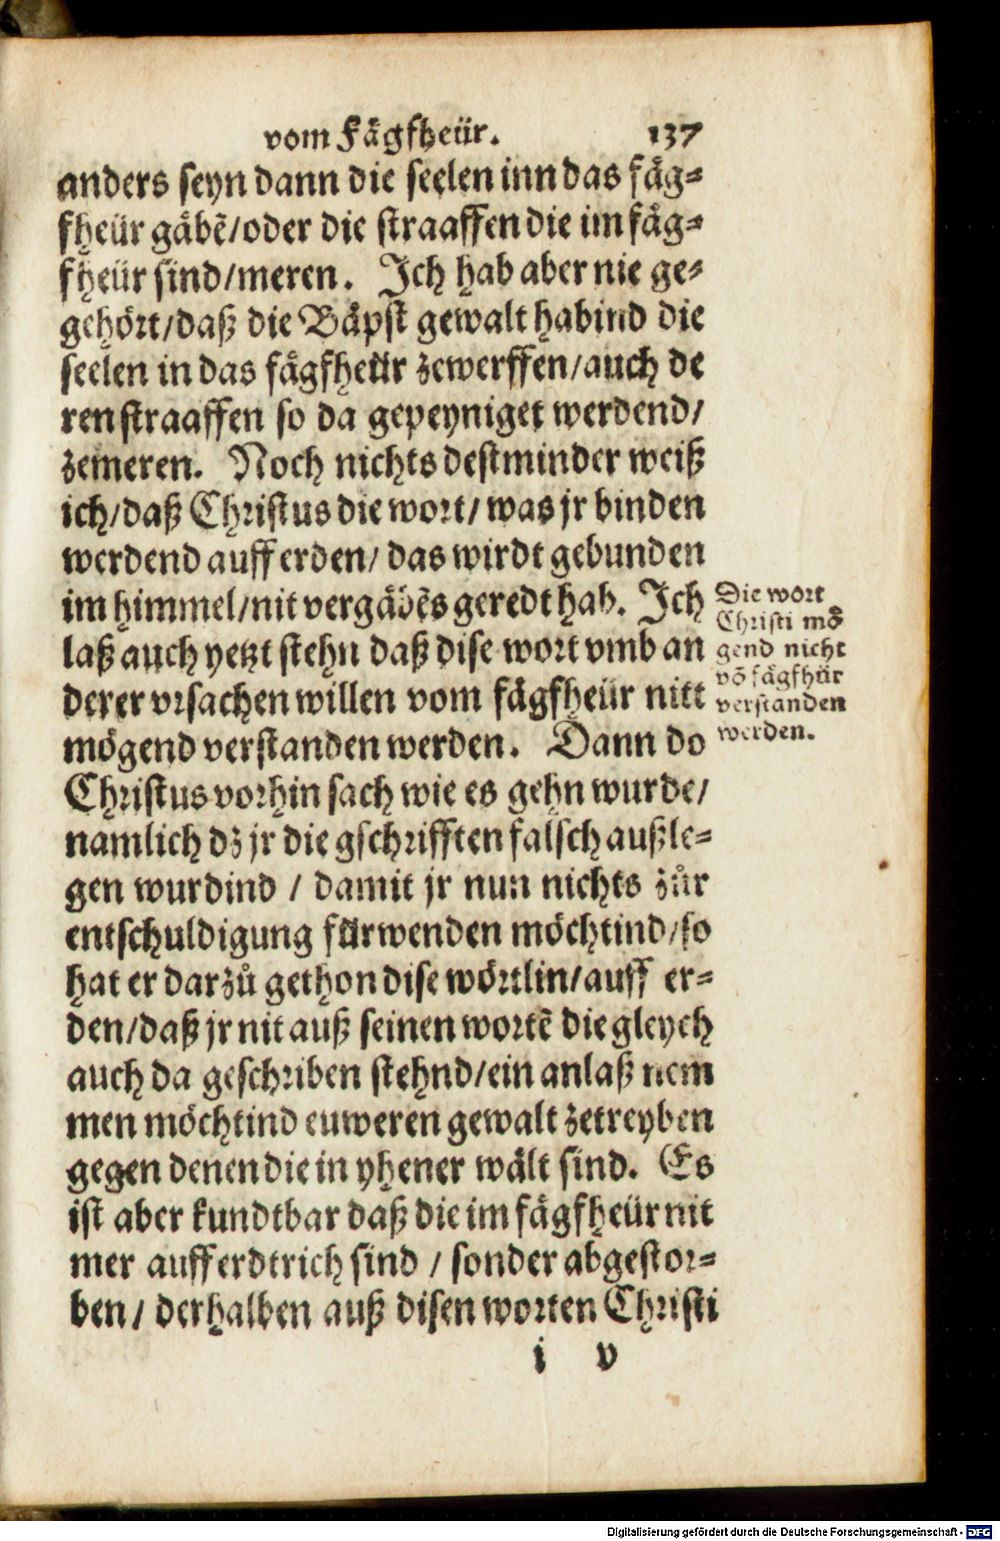 vom Fågfheür. 137
anders seyn dann die seelen inn das fåg=
fheür gåbẽ/oder die straaffen die im fåg=
fheür sind/meren. Jch hab aber nie ge=
gehört/daß die Båpst gewalt habind die
seelen in das fågfheür zewerffen/auch de
ren straaffen so da gepeyniget werdend/
zemeren. Noch nichts destminder weiß
ich/daß Christus die wort/ was jr binden
werdend auff erden/ das wirdt gebunden
im himmel/nit vergåbẽs geredt hab. Jch
laß auch yetzt stehn daß dise wort vmb an
derer vrsachen willen vom fågfheür nitt
mögend verstanden werden. Dann do
Christus vorhin sach wie es gehn wurde/
namlich dz jr die gschrifften falsch außle=
gen wurdind / damit jr nun nichts zůr
entschuldigung fürwenden möchtind/so
hat er darzů gethon dise wörtlin/auff er=
den/daß jr nit auß seinen wortẽ die gleych
auch da geschriben stehnd/ein anlaß nem
men möchtind euweren gewalt zetreyben
gegen denen die in yhener wält sind. Es
ist aber kundtbar daß die im fågfheür nit
mer auff erdtrich sind / sonder abgestor=
ben/ derhalben auß disen worten Christi
i v
Die wort
Christi mö
gend nicht
võ fågfhür
verstanden
werden.
Digitalisierung gefördert durch die Deutsche Forschungsgemeinschaft - DFG